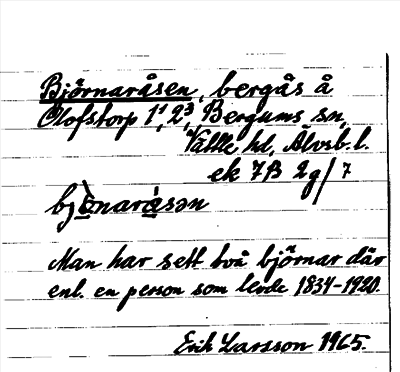 Björnaråsen, bergås å
Olofstorp 1¹, 2³, Bergums sn,
Vättle hd, Älvsb. l.
ek 7B 2g/7
bjö̀naråsən
Man har sett två björnar där
enl. en person som levde 1834-1920.
Erik Larsson 1965.